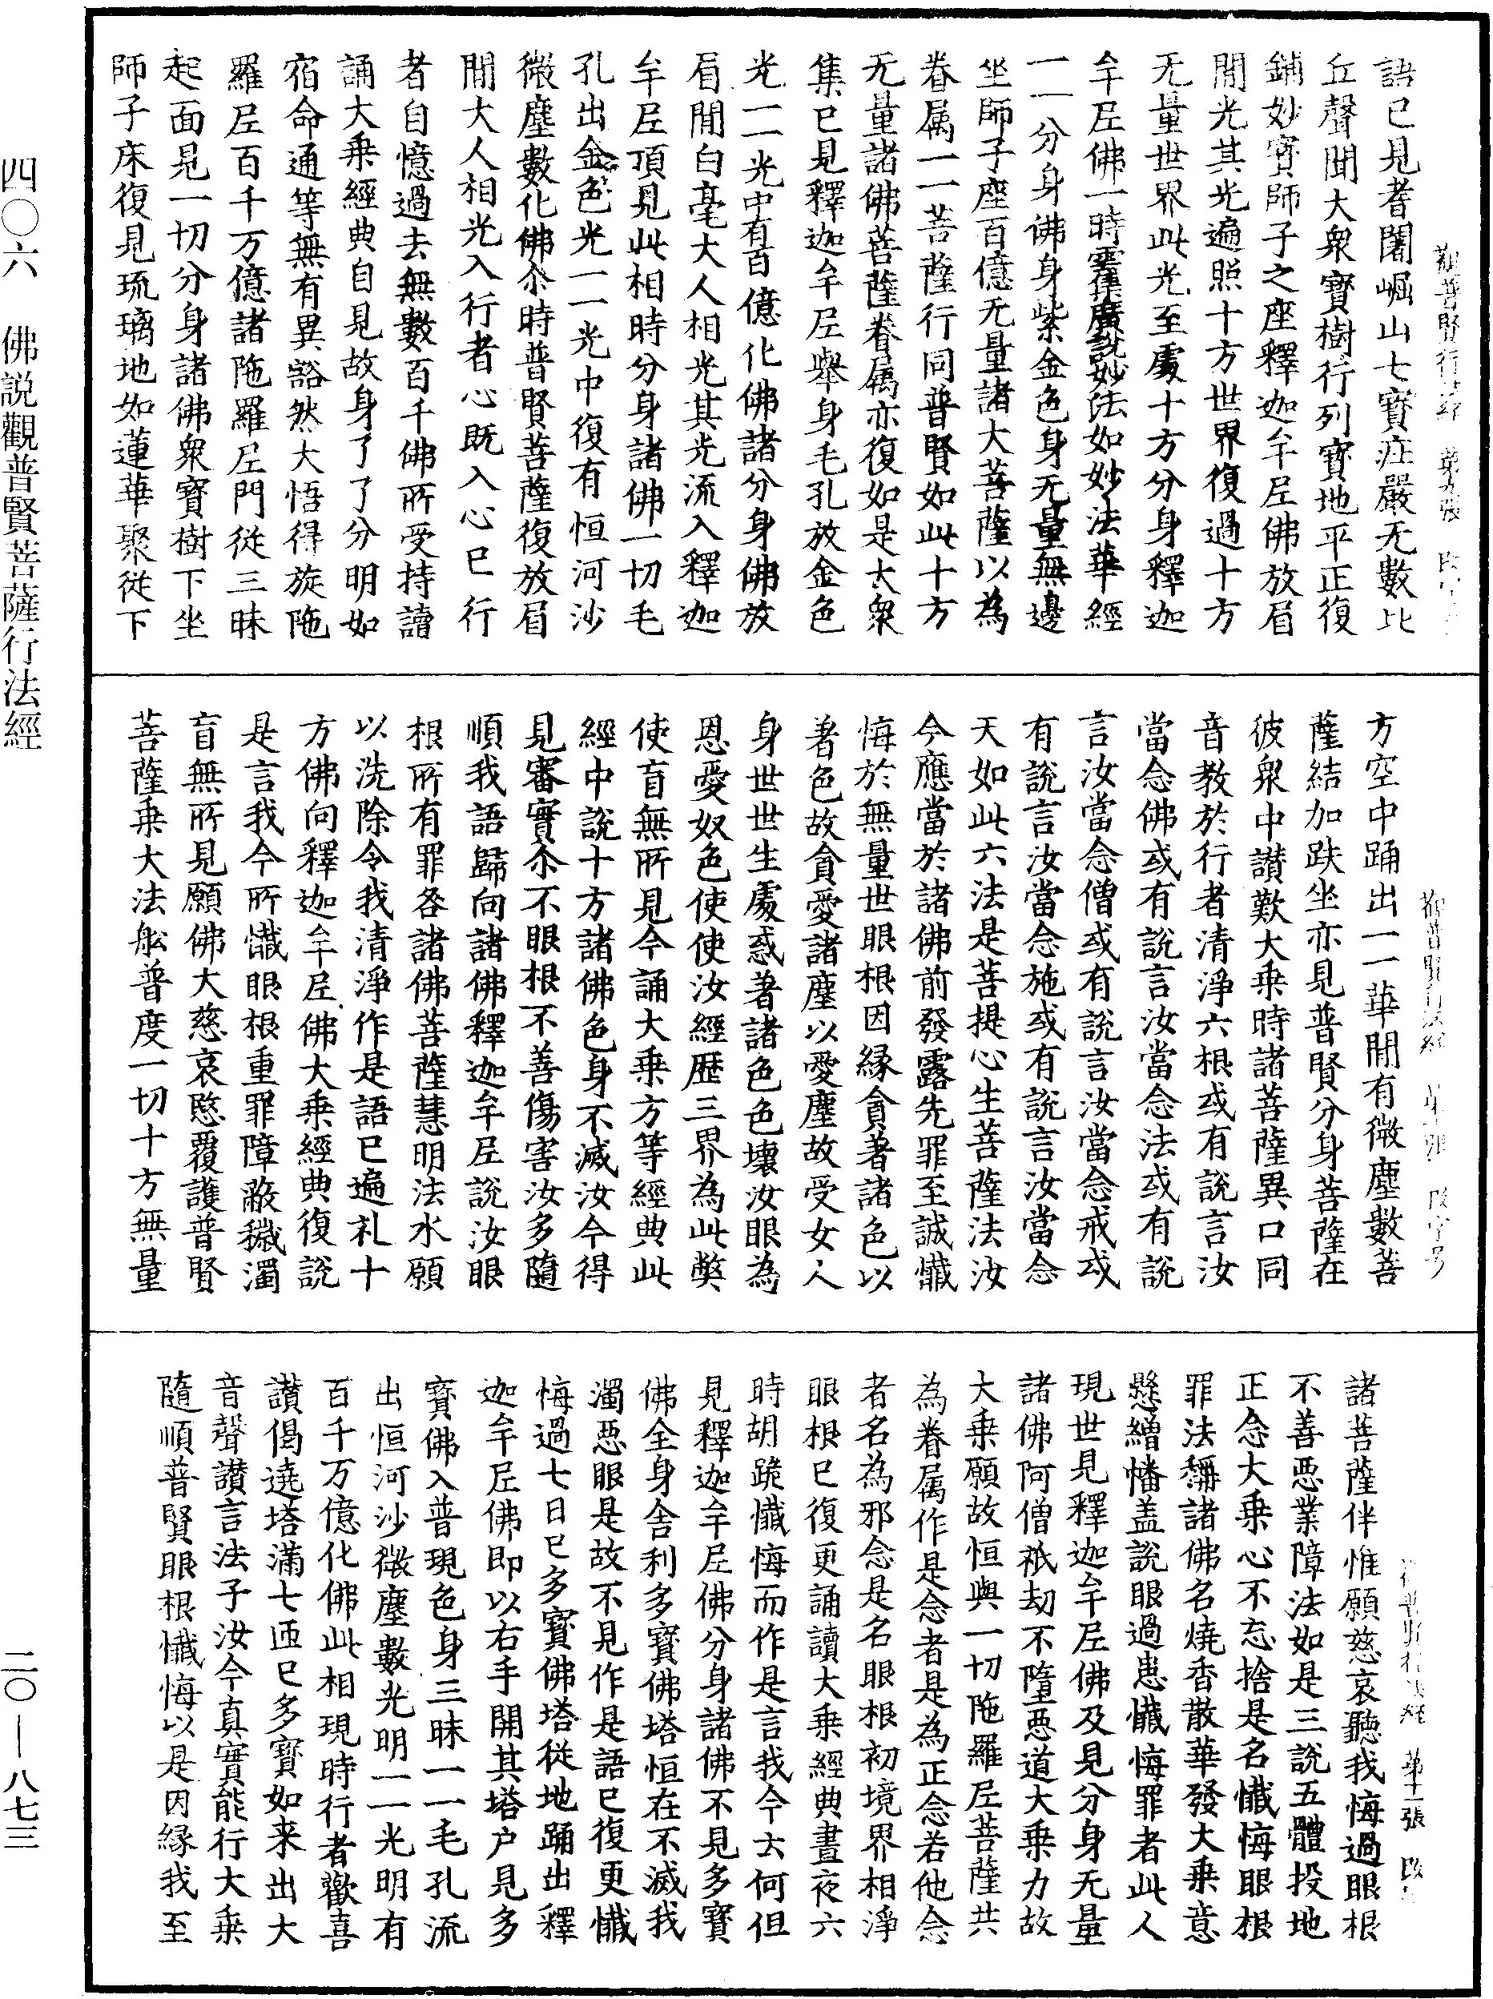 語已見耆闍崛山七寶莊嚴无數比
丘聲聞大衆寶樹行列寶地平正復
鋪妙寶師子之座釋迦牟尼佛放眉
間光其光遍照十方世界復過十方
无量世界此光至處十方分身釋迦
牟尼佛一時雲集廣說妙法如妙法華經
一一分身佛身紫金色身无量無邊
坐師子座百億无量諸大菩薩以為
眷属一一菩薩行同普賢如此十方
无量諸佛菩薩眷属亦復如是大衆
集已見釋迦牟尼舉身毛孔放金色
光一一光中有百億化佛諸分身佛放
眉間白毫大人相光其光流入釋迦
牟尼頂見此相時分身諸佛一切毛
孔出金色光一一光中復有恒河沙
微塵數化佛尒時普賢菩薩復放眉
間大人相光入行者心既入心已行
者自憶過去無數百千佛所受持讀
誦大乘經典自見故身了了分明如
宿命通等無有異豁然大悟得旋陁
羅尼百千万億諸陁羅尼門從三昧
起面見一切分身諸佛衆寶樹下坐
師子床復見琉璃地如蓮華聚從下
方空中踊出一一華間有微塵數菩
薩結加趺坐亦見普賢分身菩薩在
彼衆中讃歎大乘時諸菩薩異口同
音教於行者清淨六根或有說言汝
當念佛或有說言汝當念法或有說
言汝當念僧或有說言汝當念戒或
有說言汝當念施或有說言汝當念
天如此六法是菩提心生菩薩法汝
今應當於諸佛前發露先罪至誠懺
悔於無量世眼根因緣貪著諸色以
著色故貪愛諸塵以愛塵故受女人
身世世生處惑著諸色色壞汝眼為
恩愛奴色使使汝經歷三界為此弊
使盲無所見今誦大乘方等經典此
經中說十方諸佛色身不滅汝今得
見審實尒不眼根不善傷害汝多隨
順我語歸向諸佛釋迦牟尼說汝眼
根所有罪咎諸佛菩薩慧明法水願
以洗除令我清淨作是語已遍礼十
方佛向釋迦牟尼佛大乘經典復說
是言我今所懺眼根重罪障蔽穢濁
盲無所見願佛大慈哀愍覆護普賢
菩薩乘大法舩普度一切十方無量
諸菩薩伴惟願慈哀聽我悔過眼根
不善惡業障法如是三說五體投地
正念大乘心不忘捨是名懺悔眼根
罪法稱諸佛名燒香散華發大乘意
懸繒幡盖說眼過患懺悔罪者此人
現世見釋迦牟尼佛及見分身无量
諸佛阿僧祇劫不墮惡道大乘力故
大乘願故恒與一切陁羅尼菩薩共
為眷属作是念者是為正念若他念
者名為邪念是名眼根初境界相淨
眼根已復更誦讀大乘經典晝夜六
時胡跪懺悔而作是言我今云何但
見釋迦牟尼佛分身諸佛不見多寶
佛全身舍利多寶佛塔恒在不滅我
濁惡眼是故不見作是語已復更懺
悔過七日已多寶佛塔從地踊出釋
迦牟尼佛即以右手開其塔户見多
寶佛入普現色身三昧一一毛孔流
出恒河沙微塵數光明一一光明有
百千万億化佛此相現時行者歡喜
讃偈遶塔滿七迊已多寶如来出大
音聲讃言法子汝今真實能行大乘
隨順普賢眼根懺悔以是因緣我至
四〇六 佛說觀普賢菩薩行法經
二〇—八七三